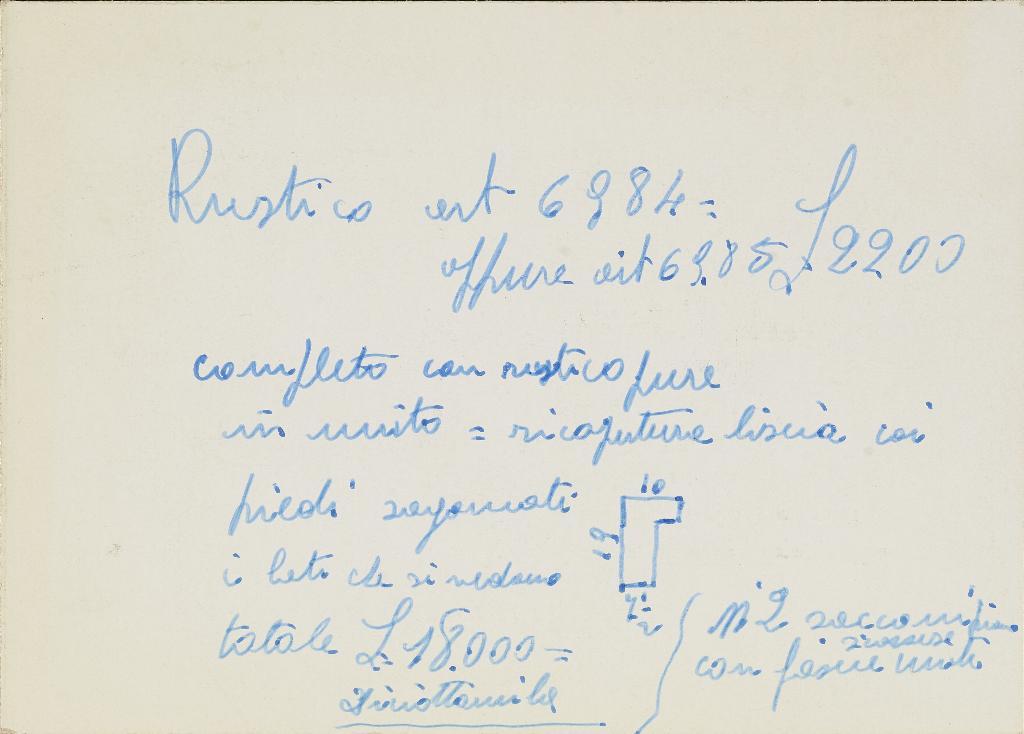 Rustico art 6984 =
oppure art 6985 £ 2200
completo con rustico pure
in unito = ricopertura liscia coi
piedi sagomati
10
19
i leti che si vedono
7½
totale £ 18.000 =
diciottomila
N 2 sacconi piano
con fascie uniti